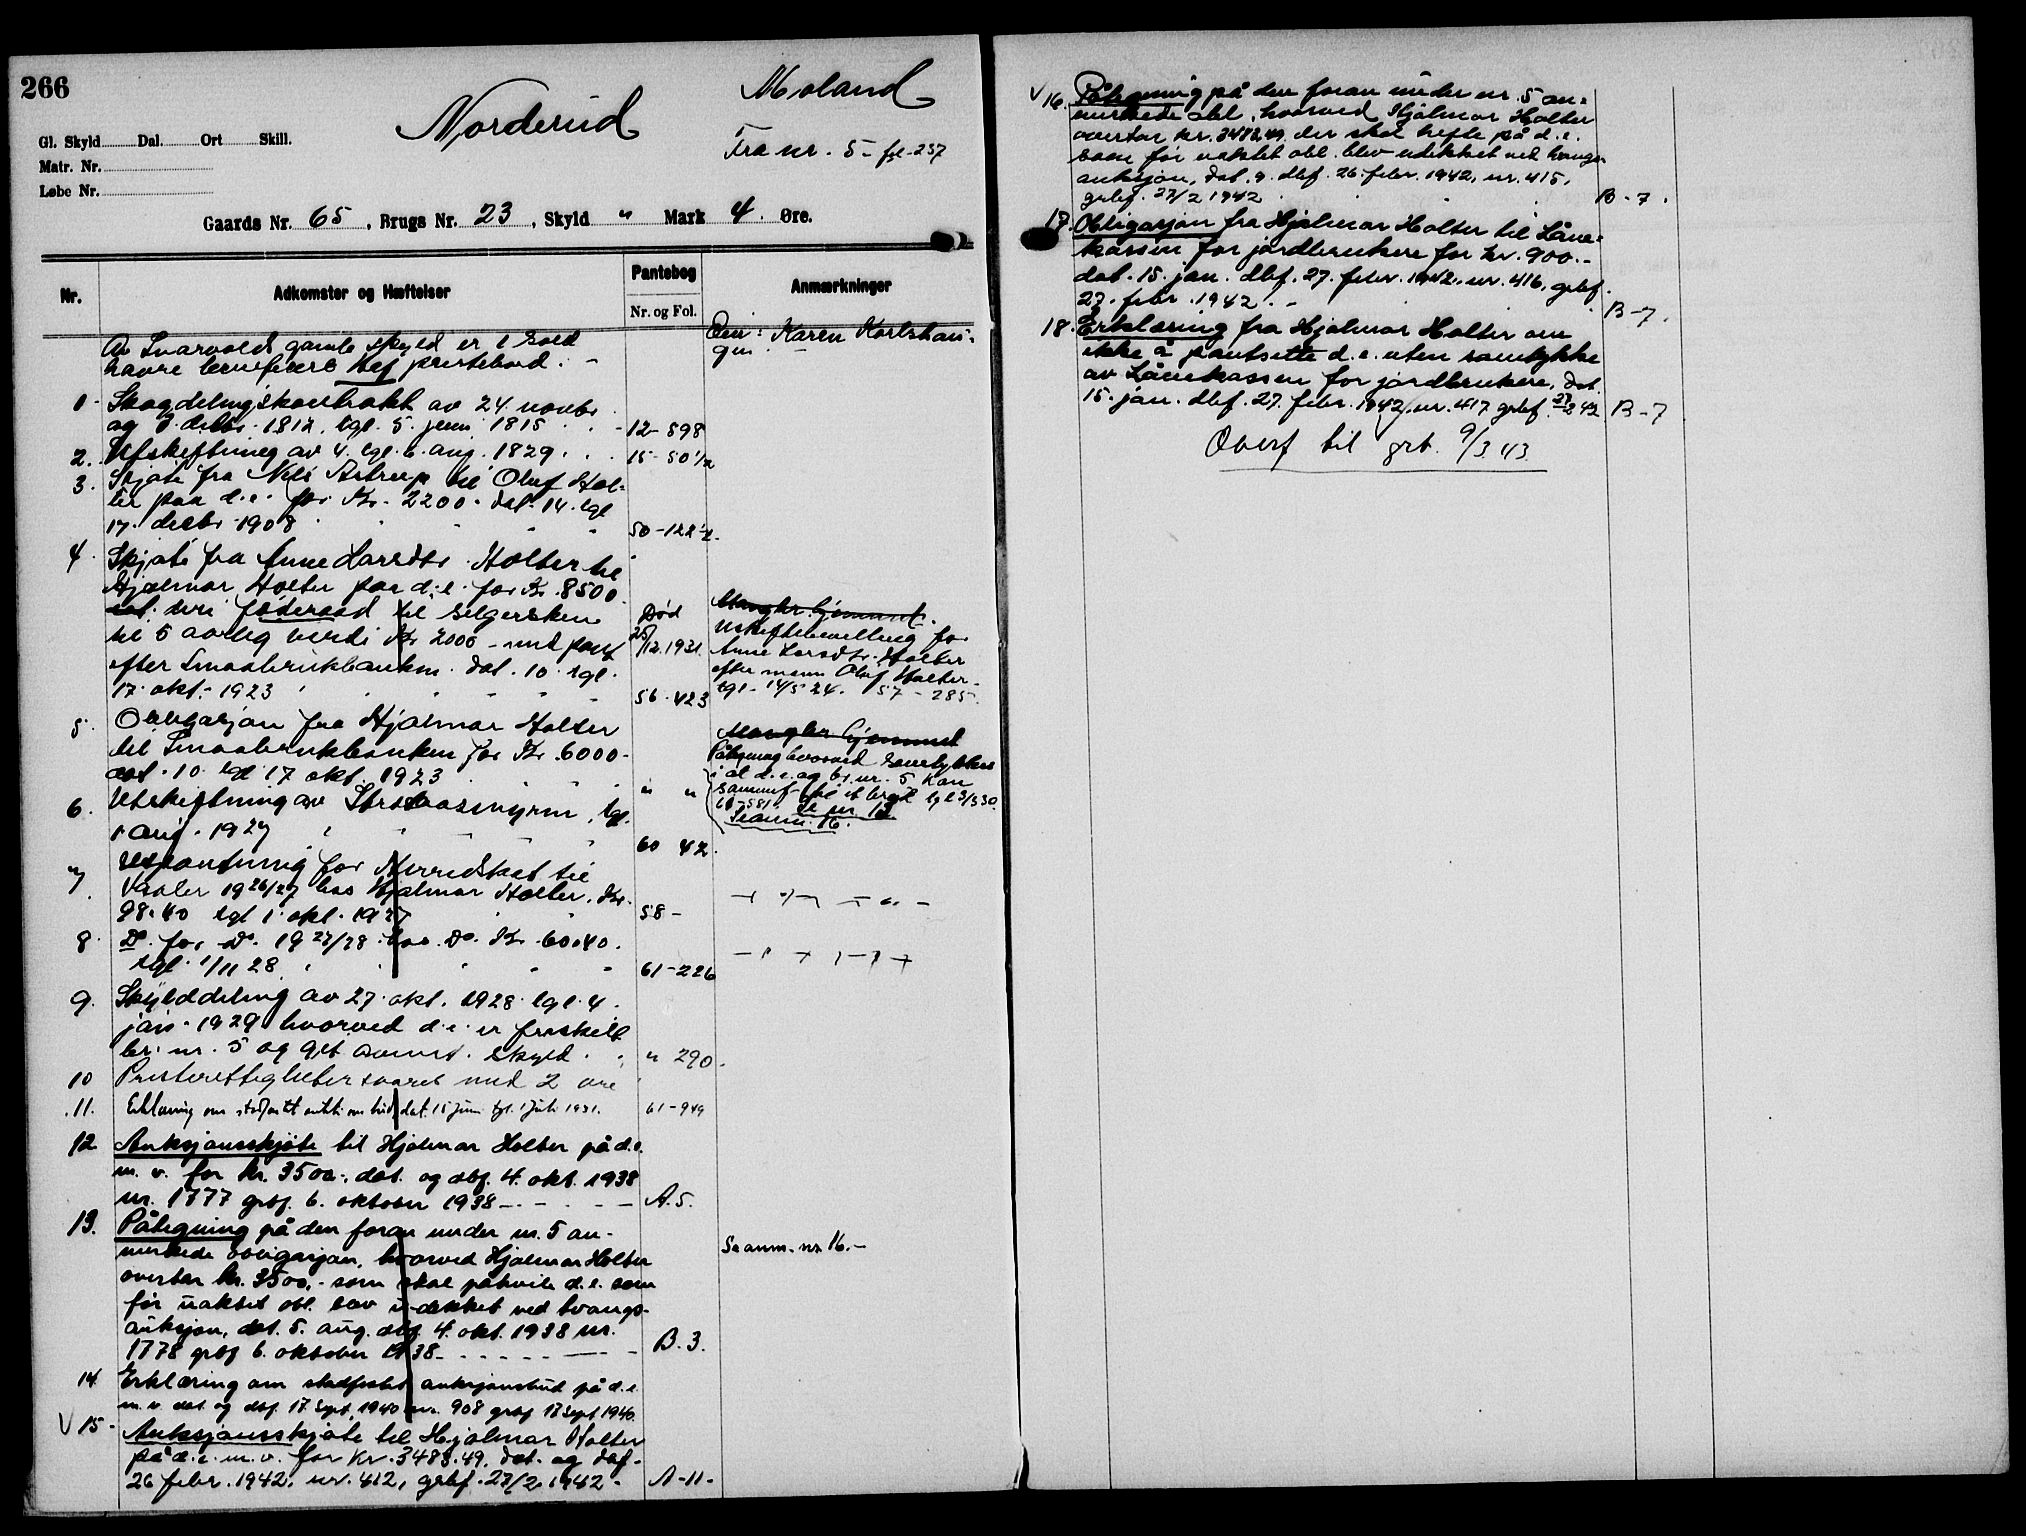 266
Moland
Norderud
Fra nr. 5 - fol - 257
Gl. Skyld Dal. Ort Skill.
Matr. Nr.
Løbe Nr.
Gaards Nr. 65, Brugs Nr. 23, Skyld " Mark 4 Øre.
Nr. Adkomster og Hæftelser Pantebog Anmærkninger
Nr. og Fol.
Av Svarvolds gamle skyld er 1 sold
havre beneficert prestebord.
Karen
1 Skogdelingskontrakt av 24. novbr
og 7 decbr. 1812, tgl. 5. juni 1815 12-598
2. Utskiftning av 4. tgl. 6. aug. 1829 15-50 1/2
3. Skjøte fra Nils Astrup til Oluf Hol-
ter paa d.e. for Kr. 2200. dat. 14. tgl
17. decbr 1908 50-122
4. Skjøte fra Anne Larsdtr. Holter til
Hjalmar Holter paa d.e. for Kr. 8500
føderaad til selgersken
til 5 aarlig verdi Kr 2000 - med pant
efter Smaabrukbanken. dat. 10. tgl.
17. okt. 1923 56-423
Død
25/12.1931.
Mangler hjemmel.
Uskiftebevilling for
Anne Larsdtr. Holter
efter mann Oluf Holter
tgl. 14/5 24. 57-285.
5. Obligasjon fra Hjalmar Holter
til Smaabrukbanken for Kr. 6000-
dat. 10 tgl 17 okt. 1923 " "
Mangler hjemmel
Påtegning hvorved samtykkes
i at d.e. og br.nr. 5 kan
61-581. Se nr. 13
Se anm. 16.
6. Utskiftning av , tgl.
1 aug. 1927 60 42.
7 Utpantning for Herredskat til
Vaaler 1926/27 hos Hjalmar Holter. Kr.
98.40 tgl 1. okt. 1927 58 -
8 Do. for Do. 1927/28 hos Do. Kr. 60.40.
tgl. 1/11 28 61-226
9. Skylddeling av 27. okt. 1928 tgl. 4.
jan. 1929 hvorved d.e. er fraskilt
br. nr. 5 og git anmrt. skyld. " 290.
10 Presterettigheter svaret med 2 øre
11. Erklæring om stadfestet auktionsbud, dat. 15 juni tgl. 1 juli 1931. 61-949
12 Auksjonsskjøte til Hjalmar Holter på d.e.
m.v. for kr. 3500.-, dat. og dbf. 4. okt. 1938
nr. 1777 grbf. 6. oktober 1938 - A.5.
13. Påtegning på den foran under nr. 5 an-
merkede obligasjon, hvorved Hjalmar Holter
overtar kr. 3500,- som skal påhvile d.e. som
før uaktet obl. blev udekket ved tvangs-
auksjon, dat. 5. aug. dbf 4. okt. 1938 nr.
1778 grbf 6. oktober 1938 - B.3.
Se anm. nr. 16.-
14. Erklæring om stadfestet auksjonsbud på d.e.
m.v. dat. og dbf. 17 sept. 1940 nr. 908 grbf 18 sept 1940.
V 15 - Auksjonsskjøte til Hjalmar Holter
på d.e. m.v. for kr. 3483.49. dat. og dbf.
26 febr. 1942, nr. 412, grbf. 27/2 1942 - A-11-
V 16. Påtegning på den foran under nr. 5 an-
merkede obl., hvorved Hjalmar Holter
overtar kr. 3483.49, der skal hefte på d.e.
som før uaktet obl. blev udekket ved tvangs-
auksjon, dat. 9. dbf. 26. febr. 1942, nr. 415,
grbf. 27/2 1942 B-7.
17. Obligasjon fra Hjalmar Holter til Låne-
kassen for jordbrukere for kr. 900.-
dat. 15. jan. dbf. 27. febr. 1942, nr. 416, grbf.
27. febr. 1942. - B-7.
18. Erklæring fra Hjalmar Holter om
ikke å pantsette d.e. uten samtykke
av Lånekassen for jordbrukere, dat
15. jan. dbf. 27. febr. 1942, nr. 417 grbf. 27/2 42 B-7
Overf til grb. 9/3 43